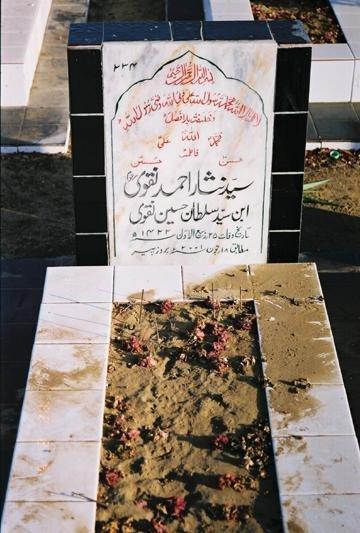 ۲۳۴
بسم اللہ الرحمن الرحیم
لا الہ الا اللہ محمد رسول اللہ علی ولی اللہ وصی رسول اللہ
و خلیفتہ بلا فصل
محمد اللہ علی
فاطمہ
حسن حسین
سید نثار احمد نقوی
ابن سید سلطان حسین نقوی
تاریخ وفات ۲۵ ربیع الاول ۱۴۲۲ھ
مطابق ۱۸ جون ۲۰۰۱ء بروز پیر